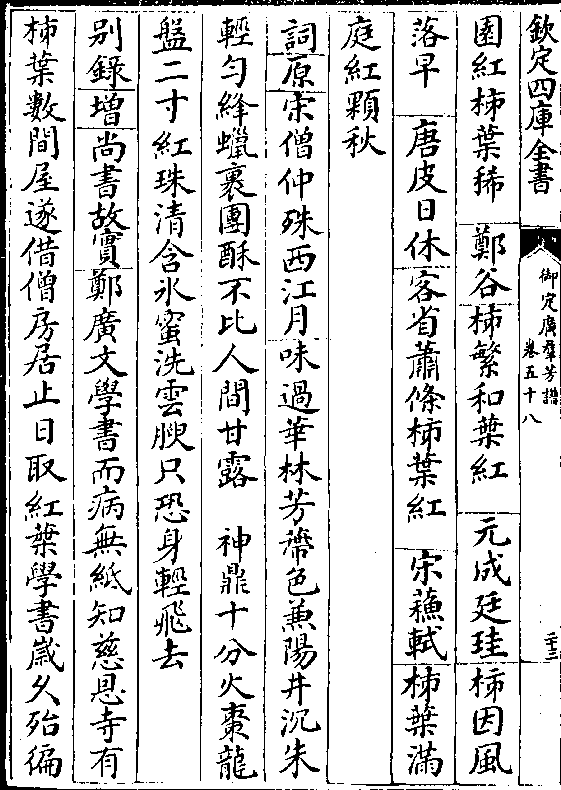 欽定四庫全書
御定廣羣芳譜
卷五十八
二十三
園紅柿葉稀 鄭谷柿繁和葉紅 元成廷珪柿因風
落早 唐皮日休客省蕭條柿葉紅 宋蘇軾柿葉滿
庭紅顆秋
詞原宋僧仲殊西江月味過華林芳蔕色兼陽井沉朱
輕勻絳蠟裹團酥不比人間甘露 神鼎十分火棗龍
盤二寸紅珠清含氷蜜洗雲腴只恐身輕飛去
别錄增尚書故實鄭廣文學書而病無紙知慈恩寺有
柿葉數間屋遂借僧房居止日取紅葉學書嵗久殆徧